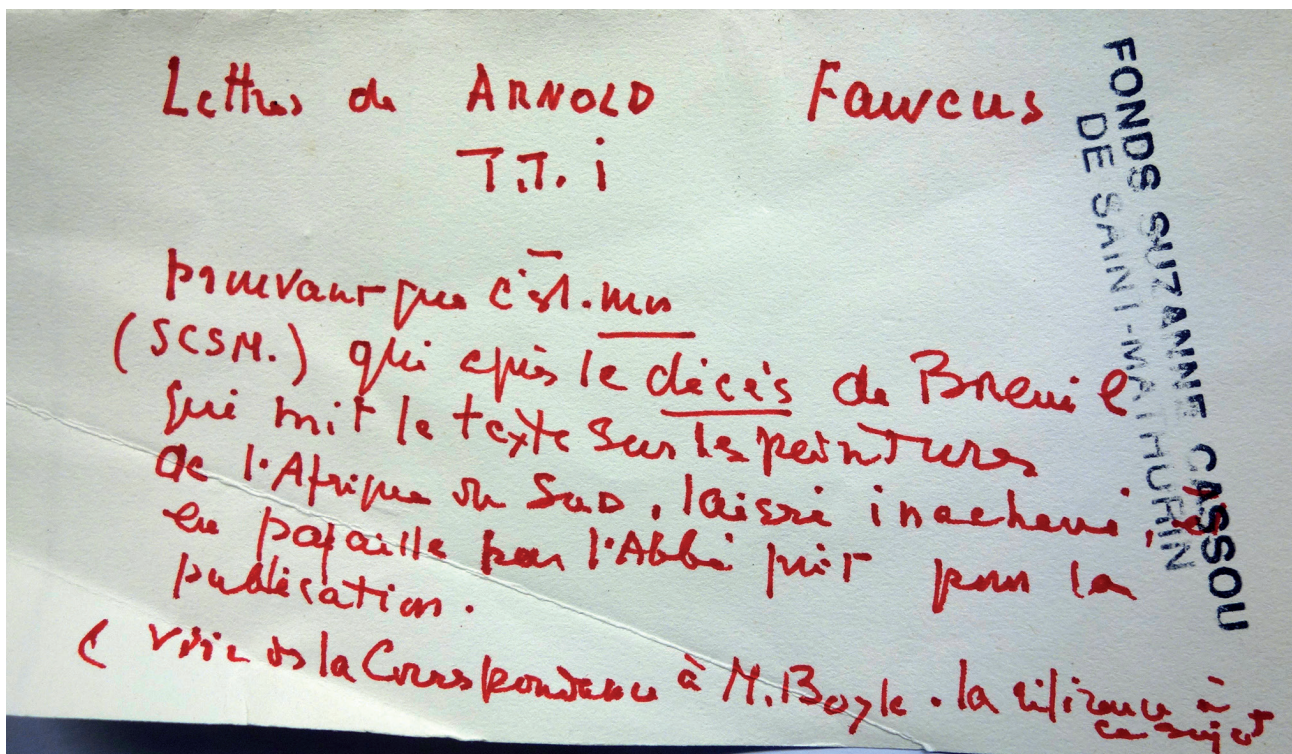 Lettres de ARNOLD Fawcus
T.T. i
prouvant que c'est moi
(SCSM.) qui après le décès de Breuil
qui mit le texte sur les peintures
de l'Afrique du Sud, laissé inachevé, et
en pagaille par l'Abbé prêt pour la
publication.
( voir ds la Correspondance à M. Boyle. la référence à
ce sujet
FONDS SUZANNE CASSOU
DE SAINT-MATHURIN